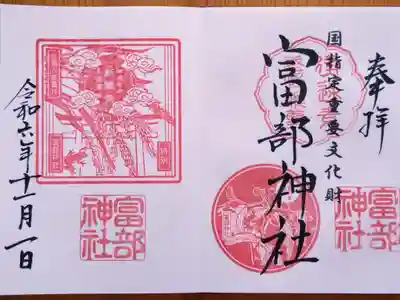 奉拝
国指定重要文化財
富部神社
富部
神社
令和六年十一月一日
特別
富部
神社